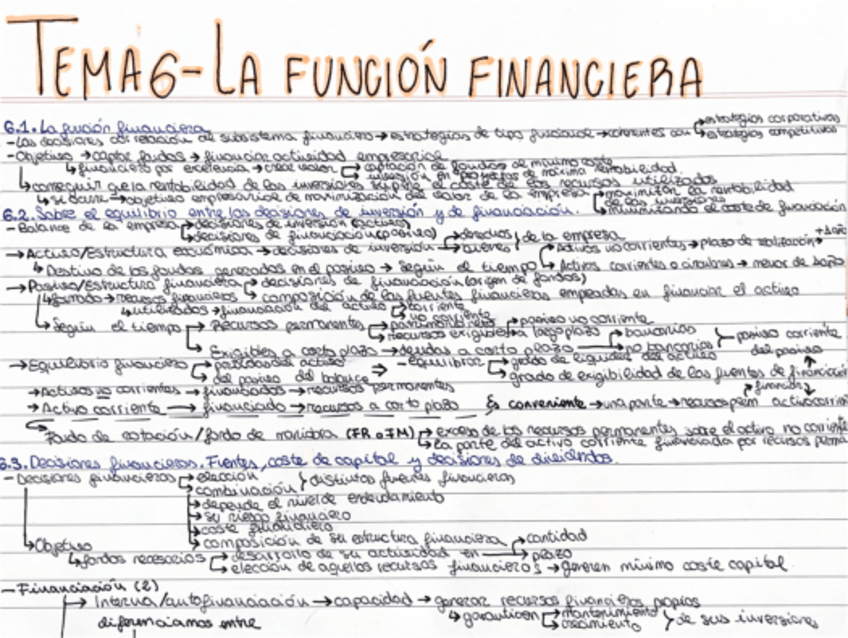 TEMA 6 - LA FUNCIÓN FINANCIERA
6.1. La función financiera
→estrategias corporativas
-Las decisiones del subsistema financiero →estrategias de tipo funcional →coherentes con →estrategias competitivas
-Objetivo →captar fondos →financiar actividad empresarial
↳financiero por excelencia →crear valor →captación de fondos de mínimo coste
→inversión en proyectos de máxima rentabilidad
↳conseguir que la rentabilidad de las inversiones supere el coste de los recursos utilizados
↳se busca →objetivo empresarial de maximización del valor de la empresa →maximizan la rentabilidad
de las inversiones
↳minimizando el coste de financiación
6.2. Sobre el equilibrio entre las decisiones de inversión y de financiación.
-Balance de la empresa →decisiones de inversión (activo)
→decisiones de financiación (pasivo) →derechos } de la empresa
→Activo/Estructura económica →decisiones de inversión →bienes →Activos no corrientes →plazo de realización → + 1 año
↳Destino de los fondos generados en el pasivo →Según el tiempo →Activos corrientes o circulantes → menor de 1 año
→Pasivo/Estructura financiera →decisiones de financiación (origen de fondos)
↳formado →recursos financieros →composición de las fuentes financieras empleadas en financiar el activo
↳utilizados →financiación del activo →corriente
→no corriente
↳Según el tiempo →Recursos permanentes →patrimonio neto →pasivo no corriente
→recursos exigibles a largo plazo →bancarias
→Exigibles a corto plazo →deudas a corto plazo →no bancarias } pasivo corriente
del pasivo
→Equilibrio financiero →partidas del activo ⇒ -equilibrio →grado de liquidez del activo
→del pasivo del balance →grado de exigibilidad de las fuentes de financiación
→Activos no corrientes →financiados →recursos permanentes
→financia
→Activo corriente → financiado →recursos a corto plazo Es conveniente →una parte →recursos perm activo corriente
↳Fondo de rotación/fondo de maniobra (FR o FM) →exceso de los recursos permanentes sobre el activo no corriente
→la parte del activo corriente financiada por recursos perma
6.3. Decisiones financieras. Fuentes, coste de capital y decisiones de dividendos.
-Decisiones financieras →elección
→combinación } distintas fuentes financieras
→depende el nivel de endeudamiento
→su riesgo financiero
→coste financiero
→composición de su estructura financiera →cantidad
↳Objetivo →plazo
↳fondos necesarios →desarrollo de su actividad en
→elección de aquellos recursos financieros →generen mínimo coste capital.
-Financiación (2)
→Interna/autofinanciación →capacidad →generar recursos financieros propios
diferenciamos entre ↳garanticen →mantenimiento
→crecimiento } de sus inversiones